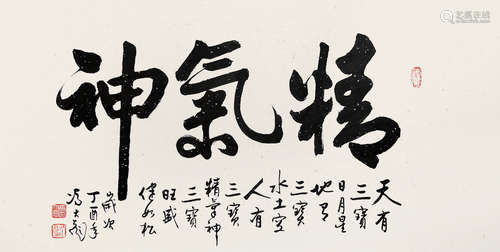 精氣神
天有
三寶
日月星
地有
三寶
水土空
人有
三寶
精氣神
三寶
旺盛
健如松
歲次
丁酉年